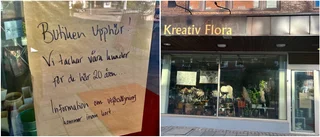 Butiken Upphör!
Vi tackar våra kunder
för de här 20 åren
Information om utförsäljning
kommer inom kort
Kreativ Flora